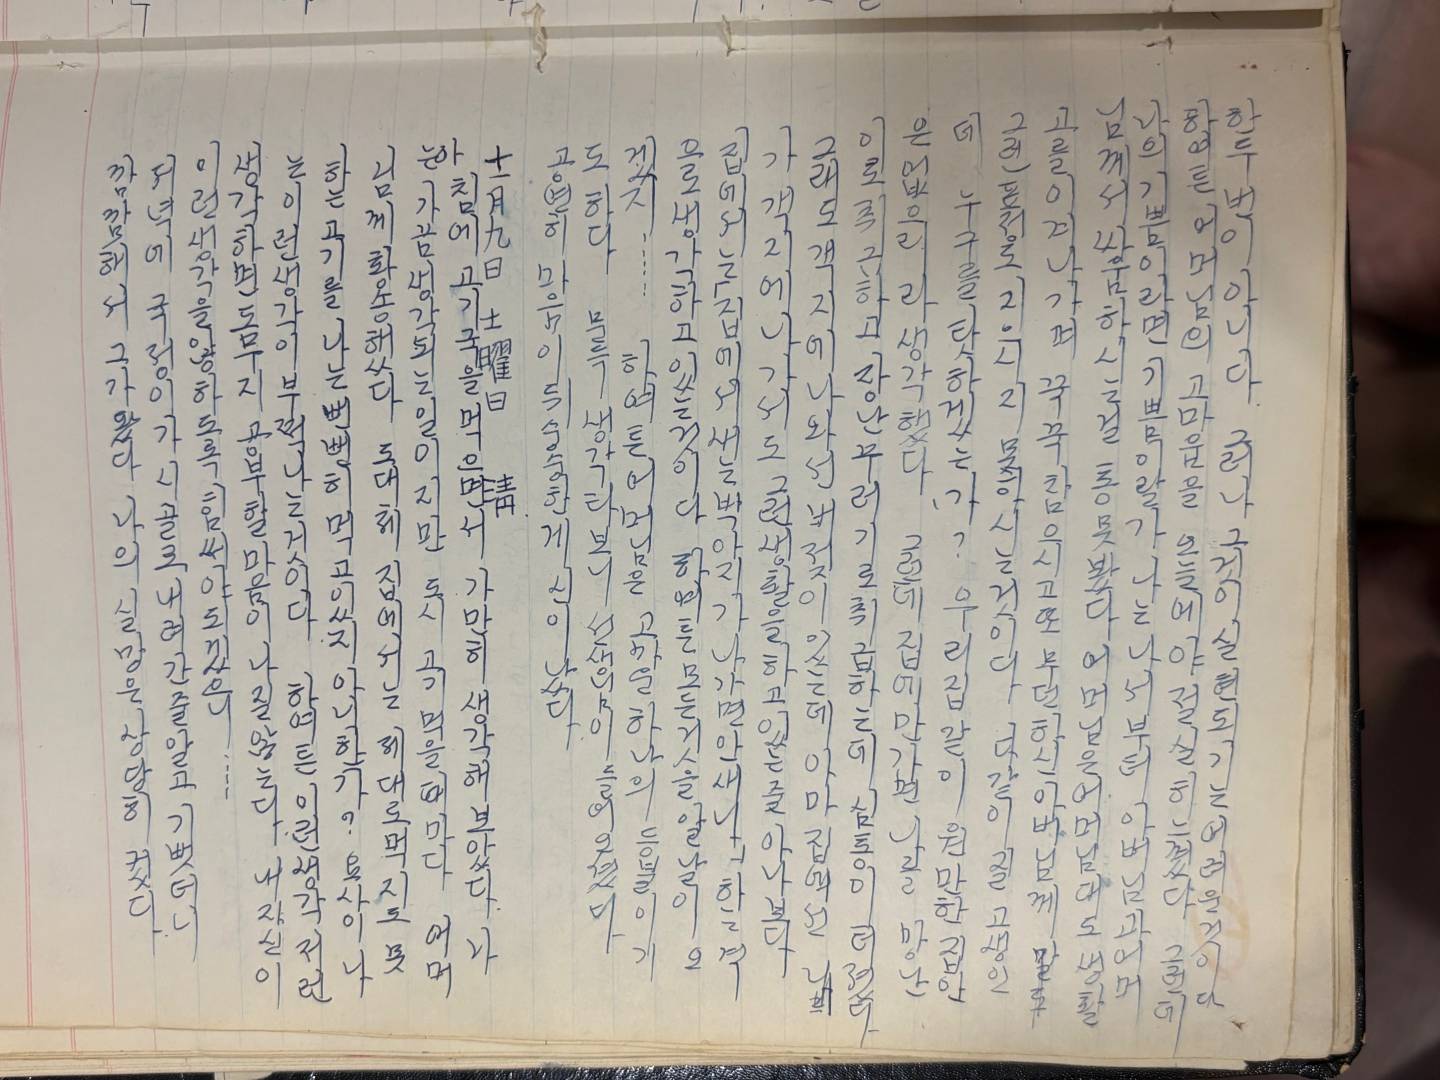 하두번이 아니다. 그러나 그것이 실현되기는 어려운것이다
하여튼 어머님의 고마움을 오늘에야 절실히 느꼈다 그런데
나의 기쁨이라면 기쁨이랄가 나는 나서부터 아버님과 어머
님께서 싸움하시는걸 통 못봤다 어머님은 어머님대로 생활
고를 이겨나가며 꾹꾹 참으시고 또 무던하신 아버님께 말
그런 표정도 지으시지 못하시는것이다 다같이 잘 고생인
데 누구를 탓하겠는가? 우리집같이 원만한 집안
은 없으리라 생각했다 그런데 집에만가면 나를 망난
이로 취급하고 장난꾸러기로 취급하는데 심통이 터졌다
그래도 객지에 나와선 버젓이 있는데 아마 집에선 내
가 객지에 나가서도 그런생활을 하고있는줄 아나보다
집에서는 집에서 새는 박아지가 나가면 안새나 하는격
으로 생각하고 있는것이다 하여튼 모든것을 알날이 오
겠지 ..... 하여튼 어머님은 고마운 하나의 등불이기
도 하다 문득 생각타보니 선생님이 들어오셨다
공연히 마음이 뒤숭숭한게 신이 났다
十一月九日 土曜日 淸
아침에 고기국을 먹으면서 가만히 생각해보았다 나
는 가끔생각되는일이지만 독시 고기 먹을때마다 어머
님께 황송해했다 도대체 집에서는 제대로먹지도 못
하는고기를 나는 뻔뻔히 먹고있지 아니한가? 항상이나
는 이런생각이 부쩍나는것이다 하여튼 이런생각 저런
생각하면 도무지 공부할마음이 나질않는다 내자신이
이런생각을 않하도록 힘써야 되겠으니 ....
저녁에 국정이가 시골로 내려간줄알고 기뻣더니
깜깜해서 그가왔다 나의 실망은 상당히 컸다